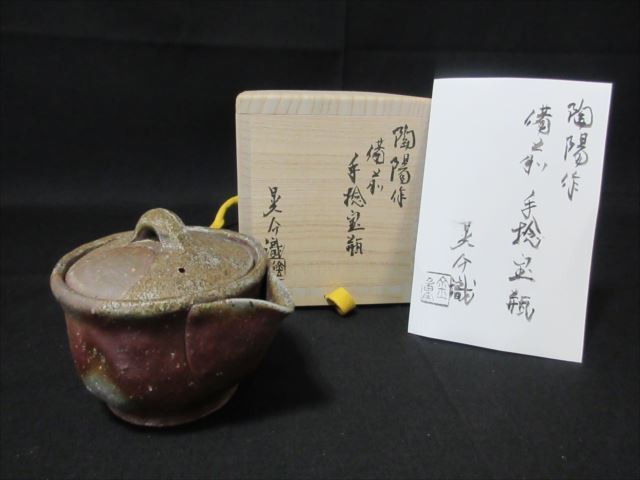 陶陽作
備前
手捻宝瓶
晃介識
陶陽作
備前 手捻宝瓶
晃介識